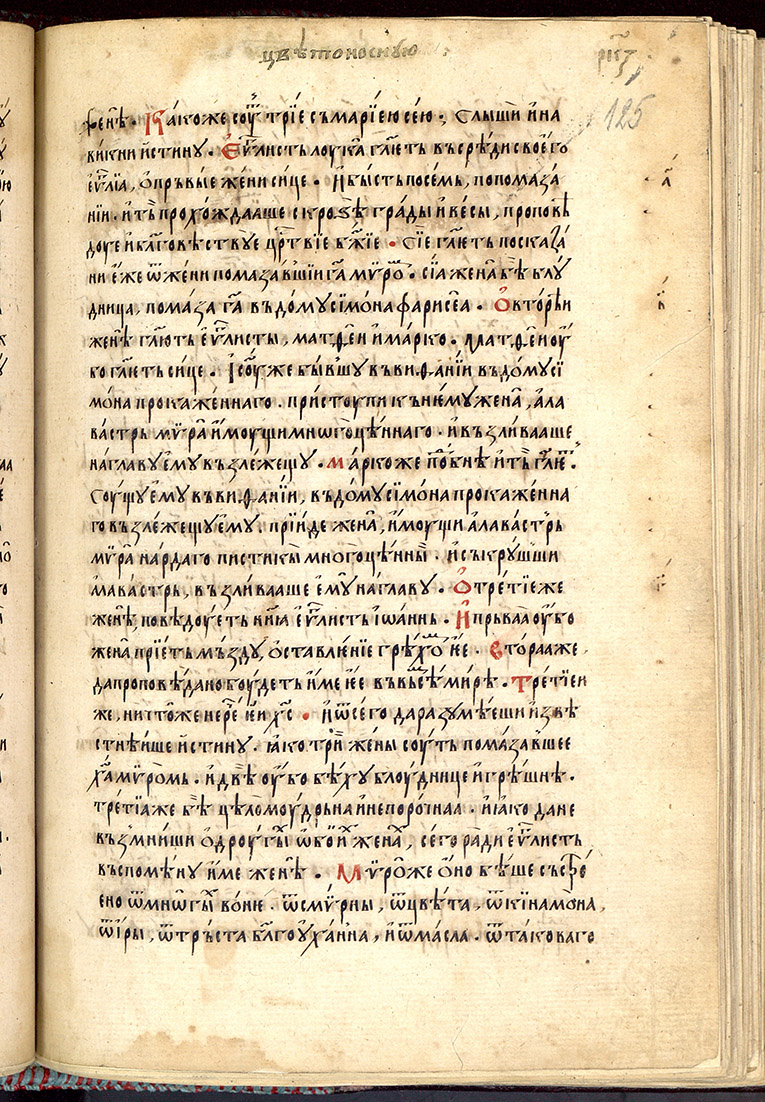 цвѣтоноснꙋю
рк҃з
125
фенѣ · Како же соу҃ трїе съ марїею сею ; Слыши и на
викни и҆стинꙋ · Еѵ҃листь лоука гл҃ѥть въ срѣди своего
еѵ҃лїа , ѻ҆ прьвые жени сице · И҆ бысть посемь , по помаза
нїи · и҆ тъ прохождааше скроѕѣ грады и҆ весы , проповѣ
доуе и҆ бл҃говѣствꙋе цр҃твїе бж҃їе · Сїе гл҃ѥть по сказа
ни е҆же ѿ жени помазавшїи га҃ мѵ̈ро · сїа жена бѣ блꙋ
дница , помаза га҃ въ домꙋ сїмона фарисеа · Ѻ҆ вторѣи
женѣ гл҃ють еѵ҃листы , матѳеи и҆ марко · Матѳеи оу҆
бо гл҃ѥть сице · І҆соу҃ же бывшꙋ въ виѳанїи въ домꙋ сї
мона прокаженнаго · пристоупи къ немꙋ жена , а҆ла
вастрь мѵ̈ра и҆моущи мнѡгоцѣннаго · и҆ възливааше
на главꙋ е҆мꙋ възлежещꙋ · марко же по҃бнѣ и҆ тъ гл҃ѥ ·
Соущꙋ е҆мꙋ въ виѳанїи , въ домꙋ сїмона прокаженна
го възлежещꙋ е҆мꙋ . прїиде жена , и҆моущи алавастрь
мѵ̈ра нардаго пистикы многоцѣнны · и҆ съкрꙋшши
алавастрь , възливааше е҆мꙋ на главꙋ · Ѻ҆ третїе же
женѣ , поведоуеть ны еѵ҃листь і҆ѡаннь · И҆ прьваа оу҆бо
жена прїеть мъздꙋ , ѻ҆ставленїе грѣхѡ ее · вторааже ,
да проповѣдано боудеть име ее въ вьсемь мирѣ · Третїеи
же , ничтоже нерече еи х҃с · И҆ ѿ сего да разꙋмѣеши и҆звѣ
стнѣише и҆стинꙋ . ꙗко три жены соуть помазавшее
х҃а мѵ̈ромь . и҆ двѣ оу҆бо бѣхꙋ блоуднице и҆ грѣшне ·
третїа же бѣ цѣломоудрьна и҆ непорочнаа · и҆ ꙗко да не
възмниши ѻ҆ дроугы ѡ҆бои жена , сего ради еѵ҃листь
въспоменꙋ име женѣ · Мѵ̈ро же ѻ҆но бѣше състро
ено ѿ мнѡгы вонь · ѿ смѵ̈рны , ѿ цвѣта , ѿ кїнамона ,
ѿ іры , ѿ тръста бл҃гоуханна , и҆ ѿ масла . ѿ таковаго